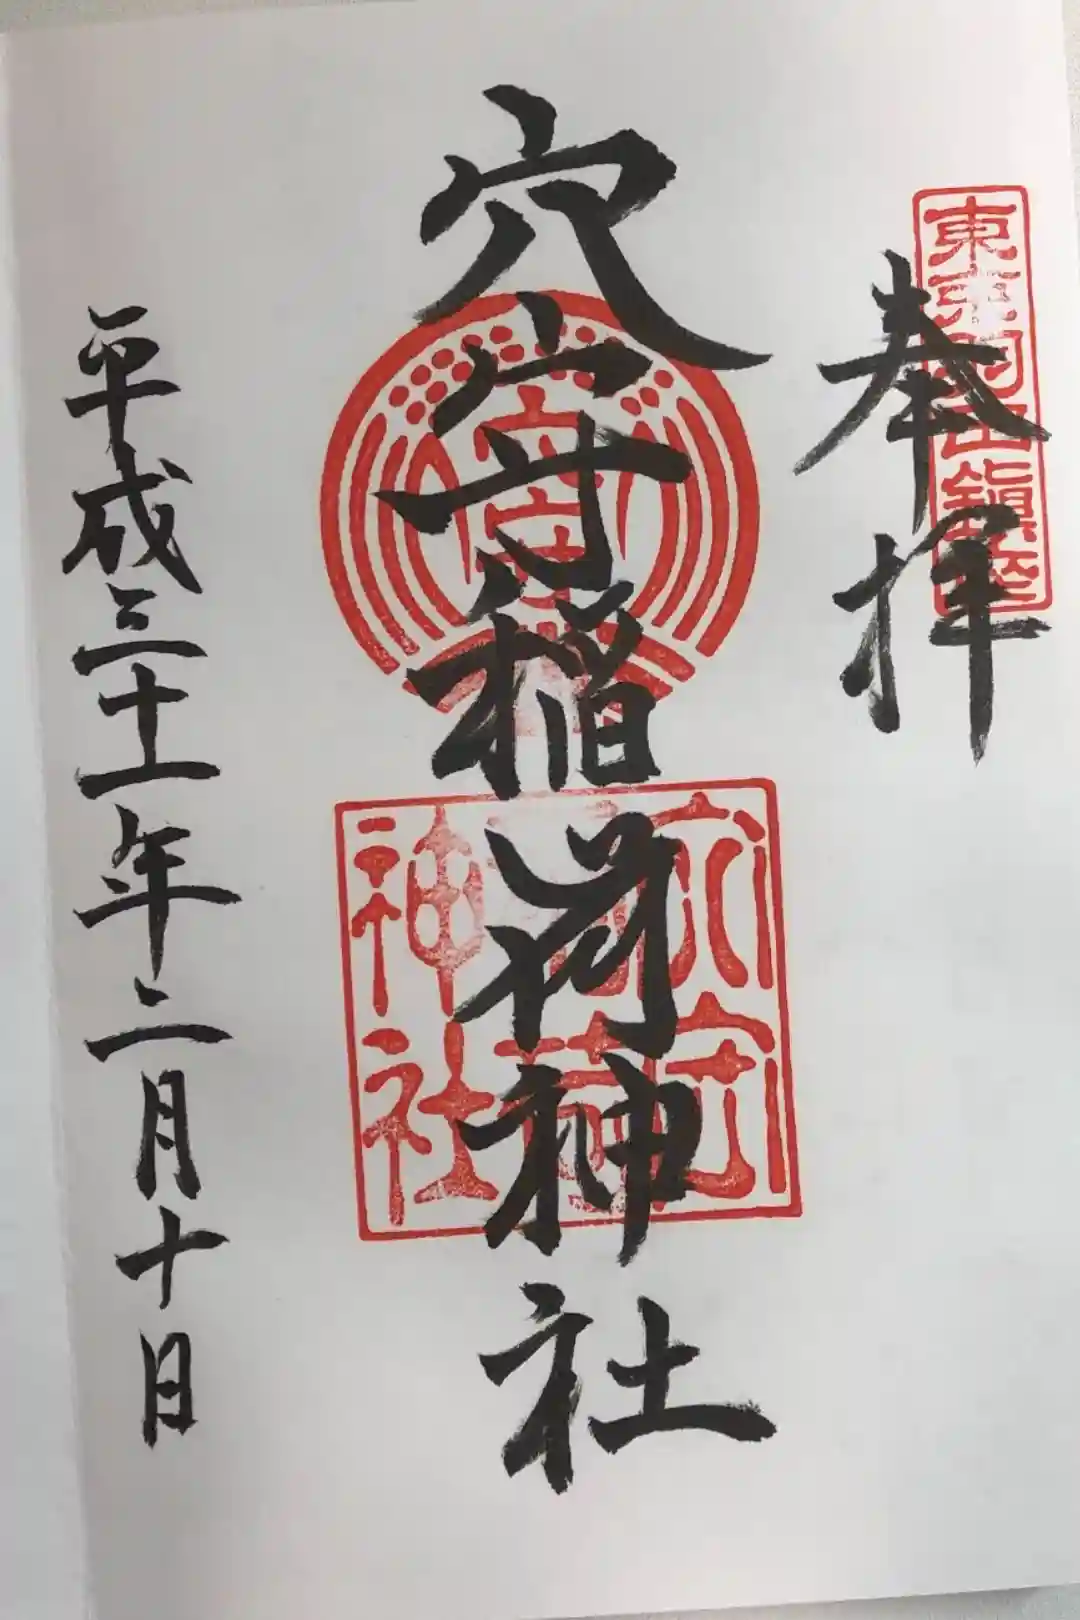 東京羽田鎮座
奉拝
穴守稲荷神社
穴守稲荷神社
平成三十一年二月十日